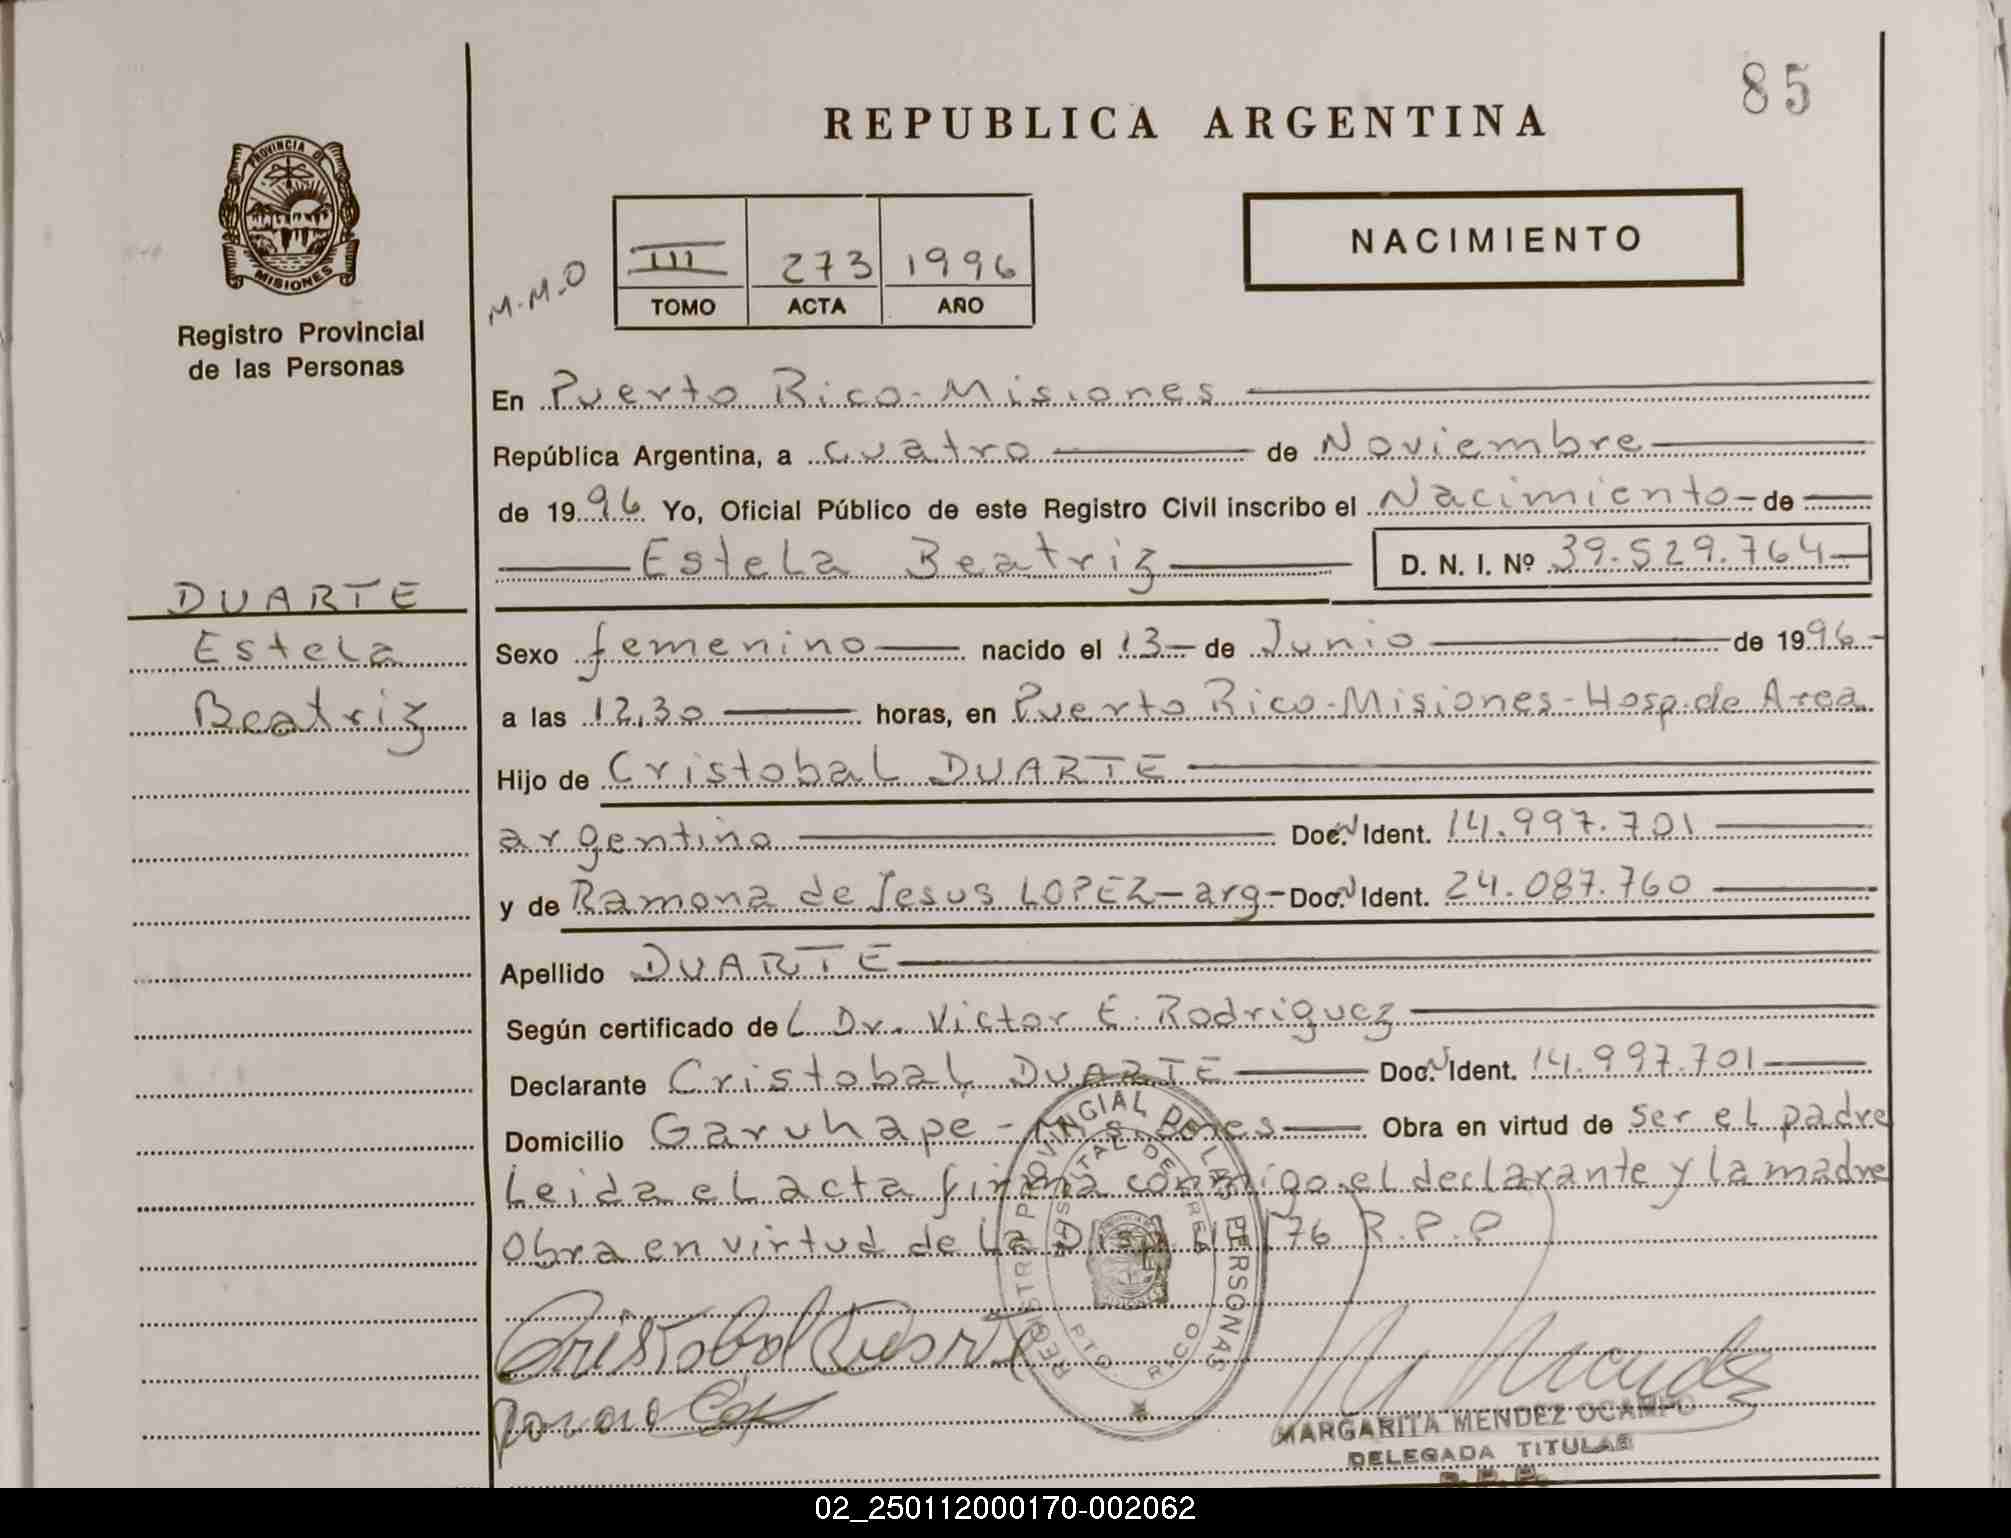 85
REPUBLICA ARGENTINA
PROVINCIA DE
MISIONES
Registro Provincial
de las Personas
M.M.O
III 273 1996
TOMO ACTA AÑO
NACIMIENTO
En Puerto Rico - Misiones
República Argentina, a cuatro de Noviembre
de 1996 Yo, Oficial Público de este Registro Civil inscribo el Nacimiento de
Estela Beatriz D. N. I. Nº 39.529.764
DUARTE
Estela
Beatriz
Sexo femenino nacido el 13 de Junio de 1996
a las 12,30 horas, en Puerto Rico - Misiones - Hosp. de Area
Hijo de Cristobal DUARTE
argentino Doc. Ident. 14.997.701
y de Ramona de Jesus LOPEZ - arg - Doc. Ident. 24.087.760
Apellido DUARTE
Según certificado del Dr. Victor E. Rodriguez
Declarante Cristobal DUARTE Doc. Ident. 14.997.701
Domicilio Garuhape - Misiones Obra en virtud de ser el padre
Leida el acta firma conmigo el declarante y la madre
Obra en virtud de la Disp. /76 R.P.P
REGISTRO PROVINCIAL DE LAS PERSONAS
HOSPITAL DE AREA
PTO. RICO
Cristobal Duarte
MARGARITA MENDEZ OCAMPO
DELEGADA TITULAR
R.P.P.
02_250112000170-002062